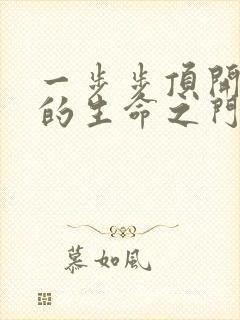 一步步頂開
的生命之門
慕如風